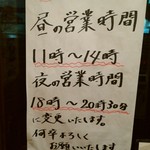 昼の営業時間
11時〜14時
夜の営業時間
18時〜20時30分
に変更いたします。
何卒よろしく
お願いいたします